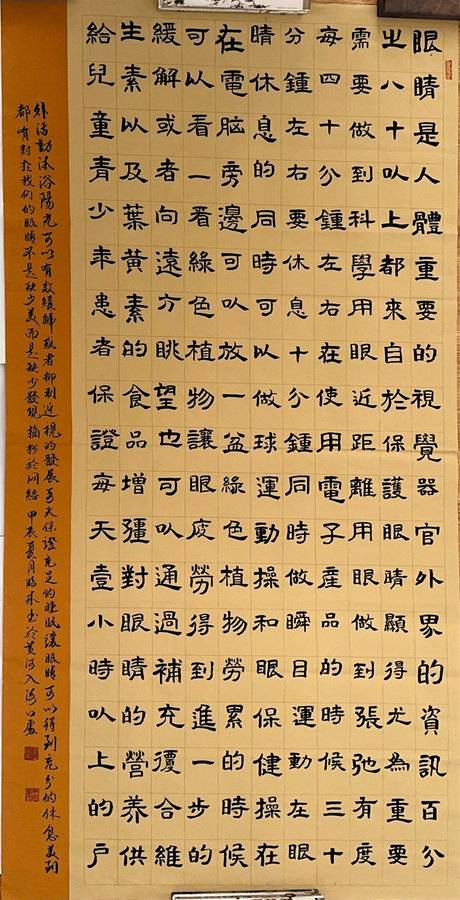 眼睛是人體重要的視覺器官外界的資訊百分
之八十以上都來自於保護眼睛顯得尤為重要
需要做到科學用眼近距離用眼做到張弛有度
每四十分鍾左右在使用電子産品的時候三十
分鍾左右要休息十分鍾同時做瞬目運動左眼
睛休息的同時可以做球運動操和眼保健操在
在電脑旁邊可以放一盆綠色植物勞累的時候
可以看一看綠色植物讓眼疲勞得到進一步的
緩解或者向遠方眺望也可以通過補充覆合維
生素以及葉黃素的食品增彊對眼睛的營养供
給兒童青少年患者保證每天壹小時以上的户
外活動沐浴陽光可以有效緩解或者抑制近視的發展每天保證充足的睡眠讓眼睛可以得到充分的休息美到
都有對於我们的眼睛不是缺少美而是缺少發現 摘抄於网络 甲辰夏月 書於黄河入海口處